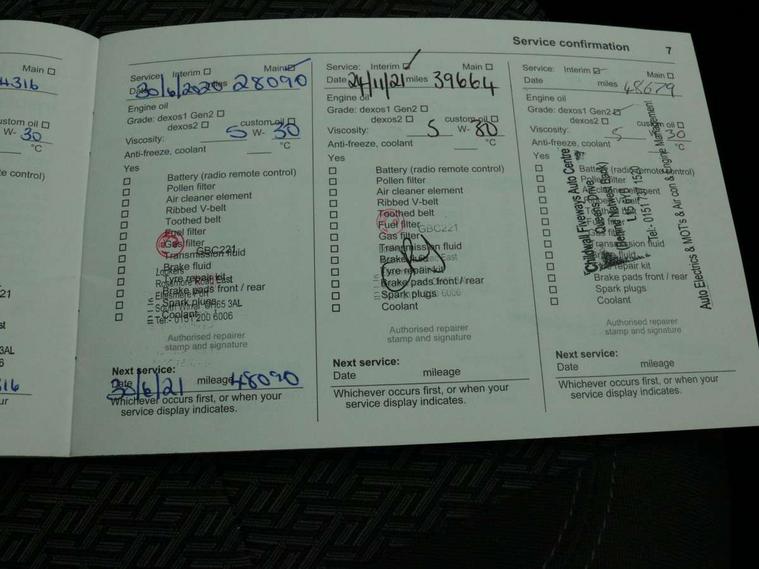 Service confirmation 7
Main
4316
ustom oil
W- 30
°C
e control)
21
3AL
6
ur
Service: Interim Main
Date 30/6/2020 miles 28090
Engine oil
Grade: dexos1 Gen2 custom oil
dexos2
Viscosity: 5 W- 30
Anti-freeze, coolant °C
Yes
Battery (radio remote control)
Pollen filter
Air cleaner element
Ribbed V-belt
Toothed belt
Fuel filter
Gas filter
GBC221
Transmission fluid
Brake fluid
Lookers
Tyre repair kit
Rossmore Road East
Brake pads front / rear
Ellesmere Port
Spark plugs
South Wirral CH65 3AL
Coolant
Tel:- 0151 200 6006
Authorised repairer
stamp and signature
Next service:
Date 30/6/21 mileage 48090
Whichever occurs first, or when your
service display indicates.
Service: Interim Main
Date 24/11/21 miles 39664
Engine oil
Grade: dexos1 Gen2
dexos2 custom oil
Viscosity: 5 W- 30
Anti-freeze, coolant °C
Yes
Battery (radio remote control)
Pollen filter
Air cleaner element
Ribbed V-belt
Toothed belt
Fuel filter
GBC221
Gas filter
Transmission fluid
Brake fluid
East
Tyre repair kit
Brake pads front / rear
Spark plugs
6006
Coolant
Authorised repairer
stamp and signature
Next service:
Date mileage
Whichever occurs first, or when your
service display indicates.
Service: Interim Main
Date miles 48679
Engine oil
Grade: dexos1 Gen2
dexos2 custom oil
Viscosity: 5 30
Anti-freeze, coolant °C
Yes
Battery (radio remote control)
Pollen filter
Air cleaner element
Ribbed V-belt
Toothed belt
Fuel filter
Gas filter
Transmission fluid
Brake fluid
Tyre repair kit
Brake pads front / rear
Spark plugs
Coolant
Childwall Fiveways Auto Centre
Queens Drive
(Behind Natwest Bank)
Tel:- 0151 1520
Auto Electrics & MOT's & Air con & Engine Management
Authorised repairer
stamp and signature
Next service:
Date mileage
Whichever occurs first, or when your
service display indicates.